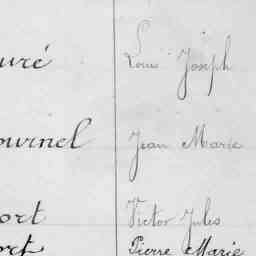 uré Louis Joseph
ournel Jean Marie
ort Victor Jules
ort Pierre Marie